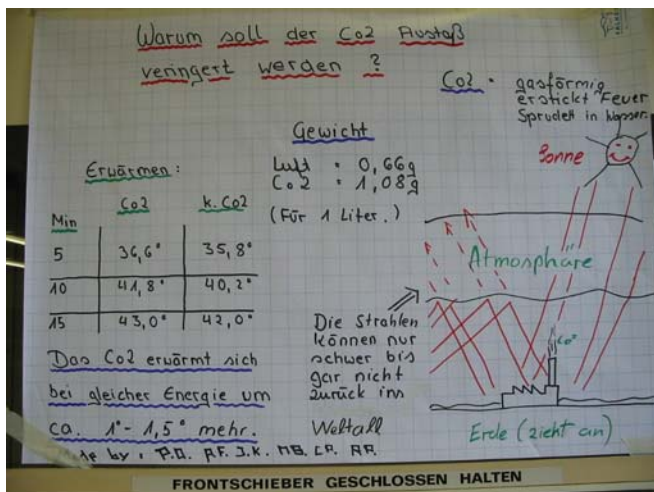 Warum soll der Co2 Austoß
veringert werden ?
Co2 = gasförmig
erstickt Feuer
Sprudelt in Wasser.
Gewicht
Luft = 0,66g
Co2 = 1,08g
(Für 1 Liter.)
Erwärmen:
Min Co2 k. Co2
5 36,6° 35,8°
10 41,8° 40,2°
15 43,0° 42,0°
Das Co2 erwärmt sich
bei gleicher Energie um
ca. 1°- 1,5° mehr.
by:
Sonne
Atmosphäre
Die Strahlen
können nur
schwer bis
gar nicht
zurück ins
Weltall
Co2
Erde (zieht an)
FRONTSCHIEBER GESCHLOSSEN HALTEN